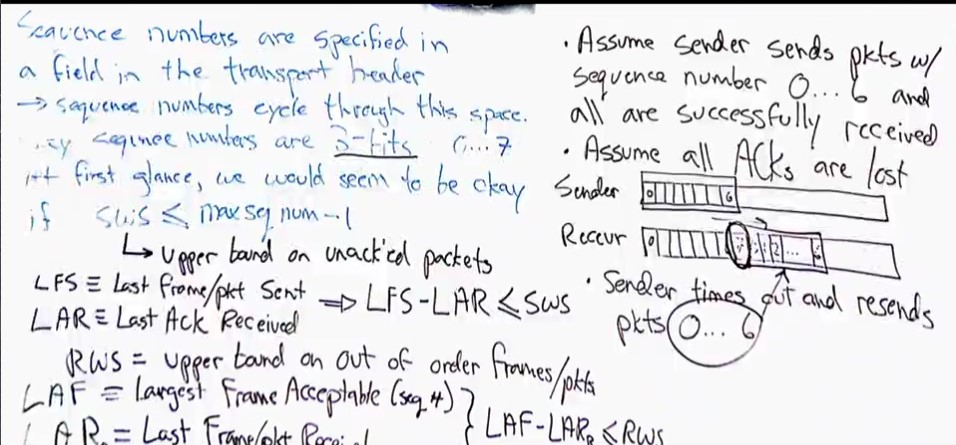 Sequence numbers are specified in
a field in the transport header
→ sequence numbers cycle through this space.
sequence numbers are 3-bits 0...7
At first glance, we would seem to be okay
if SWS ≤ max seq num -1
↳ upper bound on unack'ed packets
LFS ≡ Last Frame/pkt Sent ⇒ LFS-LAR ≤ SWS
LAR ≡ Last Ack Received
RWS = upper bound on out of order frames/pkts
LAF ≡ Largest Frame Acceptable (seq #)
LAF-LAR_R ≤ RWS
= Last Frame/pkt
• Assume sender sends pkts w/
sequence number 0...6 and
all are successfully received
• Assume all ACKs are lost
Sender 0 6
Receiver 0 7 1 2 ...
• Sender times out and resends
pkts 0...6